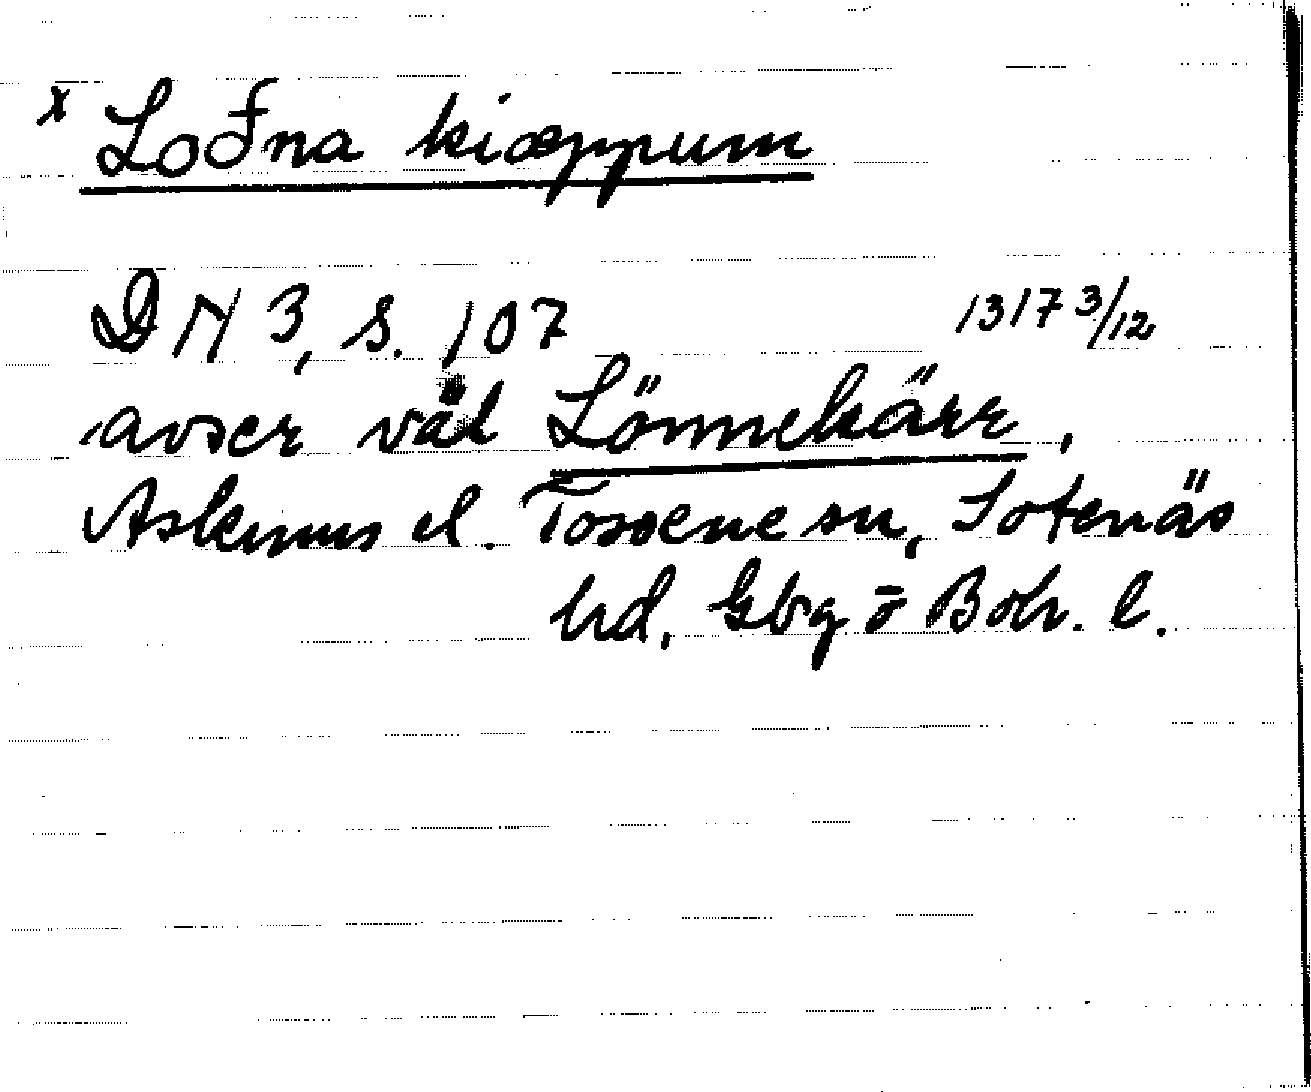 x Loðna kiæppum
DN 3, s. 107 1317 3/12
avser väl Lönnekärr,
Askums el. Tossene sn, Sotenäs
hd, Gbg o Boh. l.